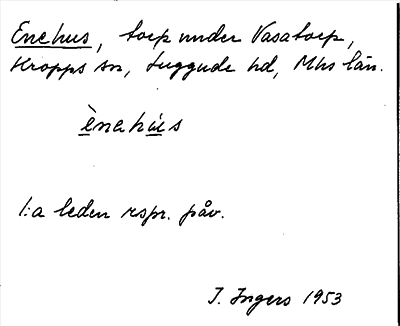 Enehus, torp under Vasatorp,
Kropps sn, Luggude hd, Mhs län.
ènehús
1:a leden rspr. påv.
I. Ingers 1953